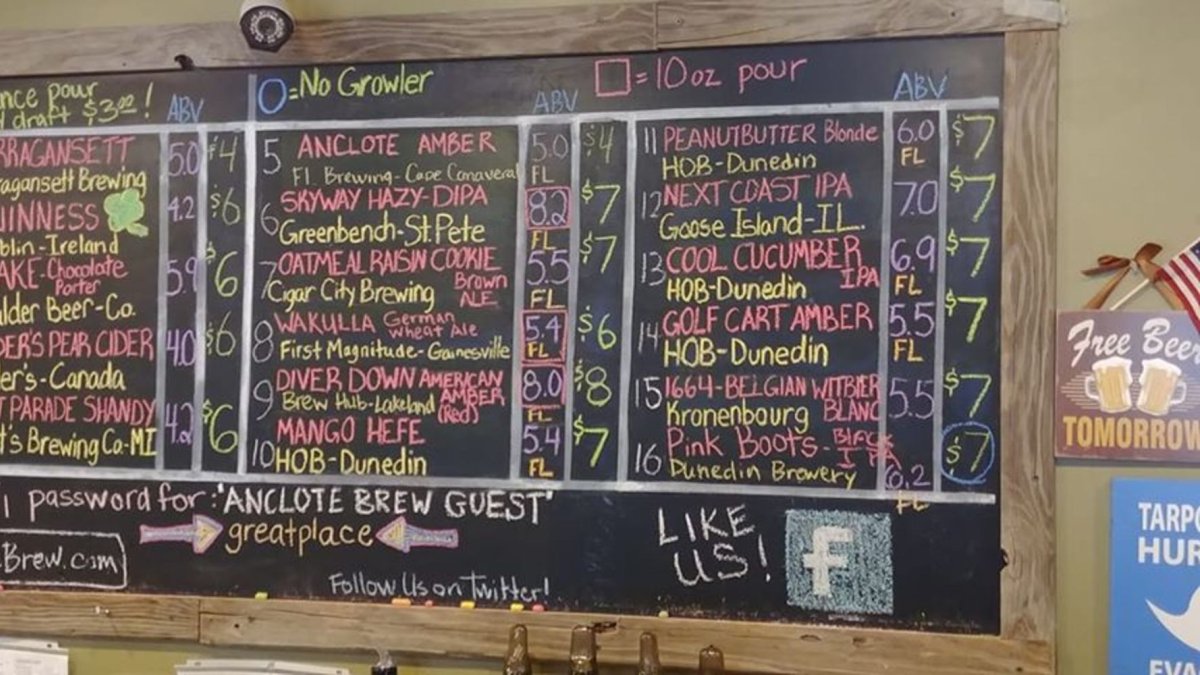 nce pour
draft $3.00!
ABV
RRAGANSETT 5.0 $4
ragansett Brewing
UINNESS 4.2 $6
blin-Ireland
AKE-Chocolate Porter 5.9 $6
ulder Beer-Co.
DER'S PEAR CIDER 4.0 $6
er's-Canada
T PARADE SHANDY 4.2 $6
t's Brewing Co-MI
O=No Growler
ABV
5 ANCLOTE AMBER 5.0 $4
Fl Brewing-Cape Canaveral FL
6 SKYWAY HAZY-DIPA 8.2 $7
Greenbench-St.Pete FL
7 OATMEAL RAISIN COOKIE 5.5 $7
Cigar City Brewing Brown ALE FL
8 WAKULLA German Wheat Ale 5.4 $6
First Magnitude-Gainesville FL
9 DIVER DOWN AMERICAN AMBER (Red) 8.0 $8
Brew Hub-Lakeland FL
10 MANGO HEFE 5.4 $7
HOB-Dunedin FL
=10oz pour
ABV
11 PEANUTBUTTER Blonde 6.0 $7
HOB-Dunedin FL
12 NEXT COAST IPA 7.0 $7
Goose Island-IL.
13 COOL CUCUMBER IPA 6.9 $7
HOB-Dunedin FL
14 GOLF CART AMBER 5.5 $7
HOB-Dunedin FL
15 1664-BELGIAN WITBIER 5.5 $7
Kronenbourg BLANC
16 Pink Boots-Black IPA 6.2 $7
Dunedin Brewery FL
I password for: "ANCLOTE BREW GUEST"
greatplace
Brew.com
Follow Us on Twitter!
LIKE
US!
f
Free Beer
TOMORROW
TARPO
HUR
EVA